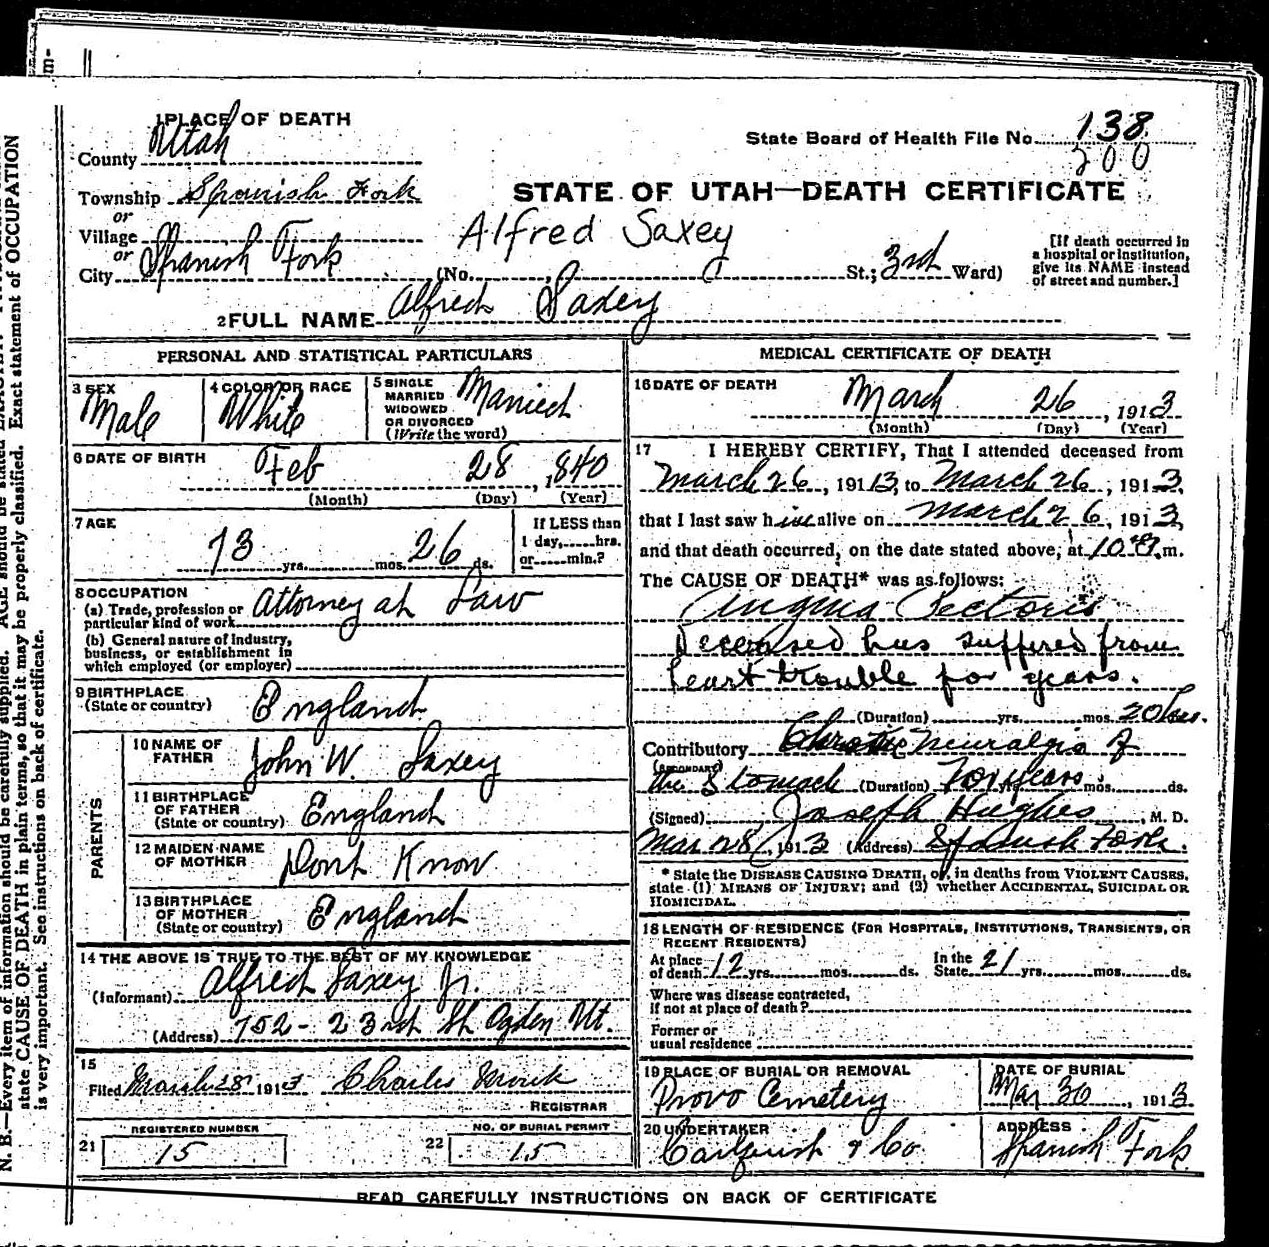 1 PLACE OF DEATH
County Utah
Township Spanish Fork
or
Village
or
City Spanish Fork (No. St.; 3rd Ward)
State Board of Health File No. 138
200
STATE OF UTAH—DEATH CERTIFICATE
Alfred Saxey
[If death occurred in
a hospital or institution,
give its NAME instead
of street and number.]
2 FULL NAME Alfred Saxey
PERSONAL AND STATISTICAL PARTICULARS
3 SEX
Male
4 COLOR OR RACE
White
5 SINGLE
MARRIED
WIDOWED
OR DIVORCED
(Write the word)
Married
6 DATE OF BIRTH
Feb 28, 1840
(Month) (Day) (Year)
7 AGE
73 yrs. mos. 26 ds.
If LESS than
1 day, hrs.
or min.?
8 OCCUPATION
(a) Trade, profession or
particular kind of work Attorney at Law
(b) General nature of industry,
business, or establishment in
which employed (or employer)
9 BIRTHPLACE
(State or country) England
PARENTS
10 NAME OF
FATHER John W. Saxey
11 BIRTHPLACE
OF FATHER
(State or country) England
12 MAIDEN NAME
OF MOTHER Dont Know
13 BIRTHPLACE
OF MOTHER
(State or country) England
14 THE ABOVE IS TRUE TO THE BEST OF MY KNOWLEDGE
(Informant) Alfred Saxey Jr.
(Address) 752 - 23rd St. Ogden Ut.
15
Filed March 28 1913 Charles
REGISTRAR
REGISTERED NUMBER
21 15
NO. OF BURIAL PERMIT
22 15
MEDICAL CERTIFICATE OF DEATH
16 DATE OF DEATH
March 26, 1913
(Month) (Day) (Year)
17 I HEREBY CERTIFY, That I attended deceased from
March 26, 1913, to March 26, 1913,
that I last saw him alive on March 26, 1913,
and that death occurred, on the date stated above, at 10 m.
The CAUSE OF DEATH* was as follows:
Angina Pectoris
Deceased has suffered from
heart trouble for years.
(Duration) yrs. mos. 20
Contributory Chronic Neuralgia of
(SECONDARY)
the Stomach (Duration) for years mos. ds.
(Signed) Joseph Hughes, M. D.
Mar 28, 1913 (Address) Spanish Fork.
* State the DISEASE CAUSING DEATH, or, in deaths from VIOLENT CAUSES,
state (1) MEANS OF INJURY; and (2) whether ACCIDENTAL, SUICIDAL OR
HOMICIDAL.
18 LENGTH OF RESIDENCE (FOR HOSPITALS, INSTITUTIONS, TRANSIENTS, OR
RECENT RESIDENTS)
At place
of death 12 yrs. mos. ds.
In the
State 21 yrs. mos. ds.
Where was disease contracted,
if not at place of death?
Former or
usual residence
19 PLACE OF BURIAL OR REMOVAL
Provo Cemetery
DATE OF BURIAL
Mar 30, 1913
20 UNDERTAKER
& Co
ADDRESS
Spanish Fork
READ CAREFULLY INSTRUCTIONS ON BACK OF CERTIFICATE
N. B.—Every item of information should be carefully supplied. AGE should be stated
state CAUSE OF DEATH in plain terms, so that it may be properly classified. Exact statement of OCCUPATION
is very important. See instructions on back of certificate.